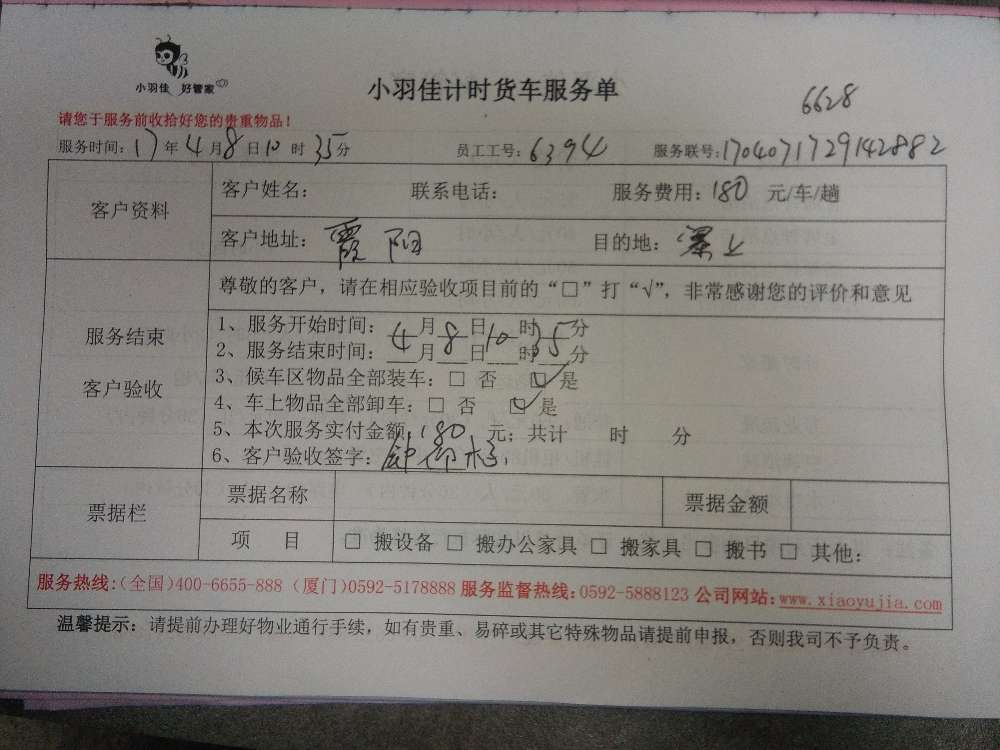 小羽佳 好管家
小羽佳计时货车服务单
6628
请您于服务前收拾好您的贵重物品！
服务时间：17年4月8日10时35分 员工工号：6394 服务联号：1704071729142882
客户资料
客户姓名： 联系电话： 服务费用：180 元/车/趟
客户地址：霞阳 目的地：
服务结束
客户验收
尊敬的客户，请在相应验收项目前的“□”打“√”，非常感谢您的评价和意见
1、服务开始时间：4月8日10时35分
2、服务结束时间：___月___日___时___分
3、候车区物品全部装车：□ 否 ☑ 是
4、车上物品全部卸车：□ 否 ☑ 是
5、本次服务实付金额 180 元；共计 时 分
6、客户验收签字：
票据栏
票据名称 票据金额
项 目 □ 搬设备 □ 搬办公家具 □ 搬家具 □ 搬书 □ 其他：
服务热线：（全国）400-6655-888（厦门）0592-5178888 服务监督热线：0592-5888123 公司网站：www.xiaoyujia.com
温馨提示：请提前办理好物业通行手续，如有贵重、易碎或其它特殊物品请提前申报，否则我司不予负责。